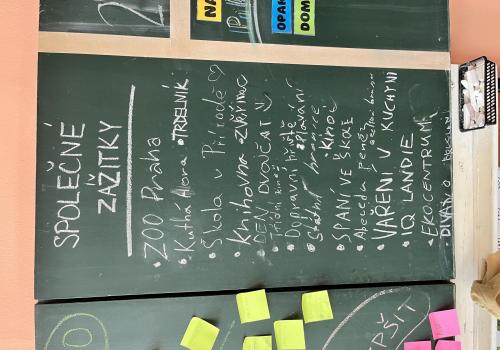 SPOLEČNÉ
ZÁŽITKY
• ZOO Praha
• Kutná Hora • TRDELNÍK
• Škola v Přírodě ♡
• Knihovna • Zvířátka
• DEN DVOJČAT
• Dopravní hřiště • plavání
• Státní hranice • Kino
• SPANÍ VE ŠKOLE
• Abeceda peněz
• VAŘENÍ V KUCHYNI
• IQ LANDIE
• EKOCENTRUM
NA
OPAK
DOM